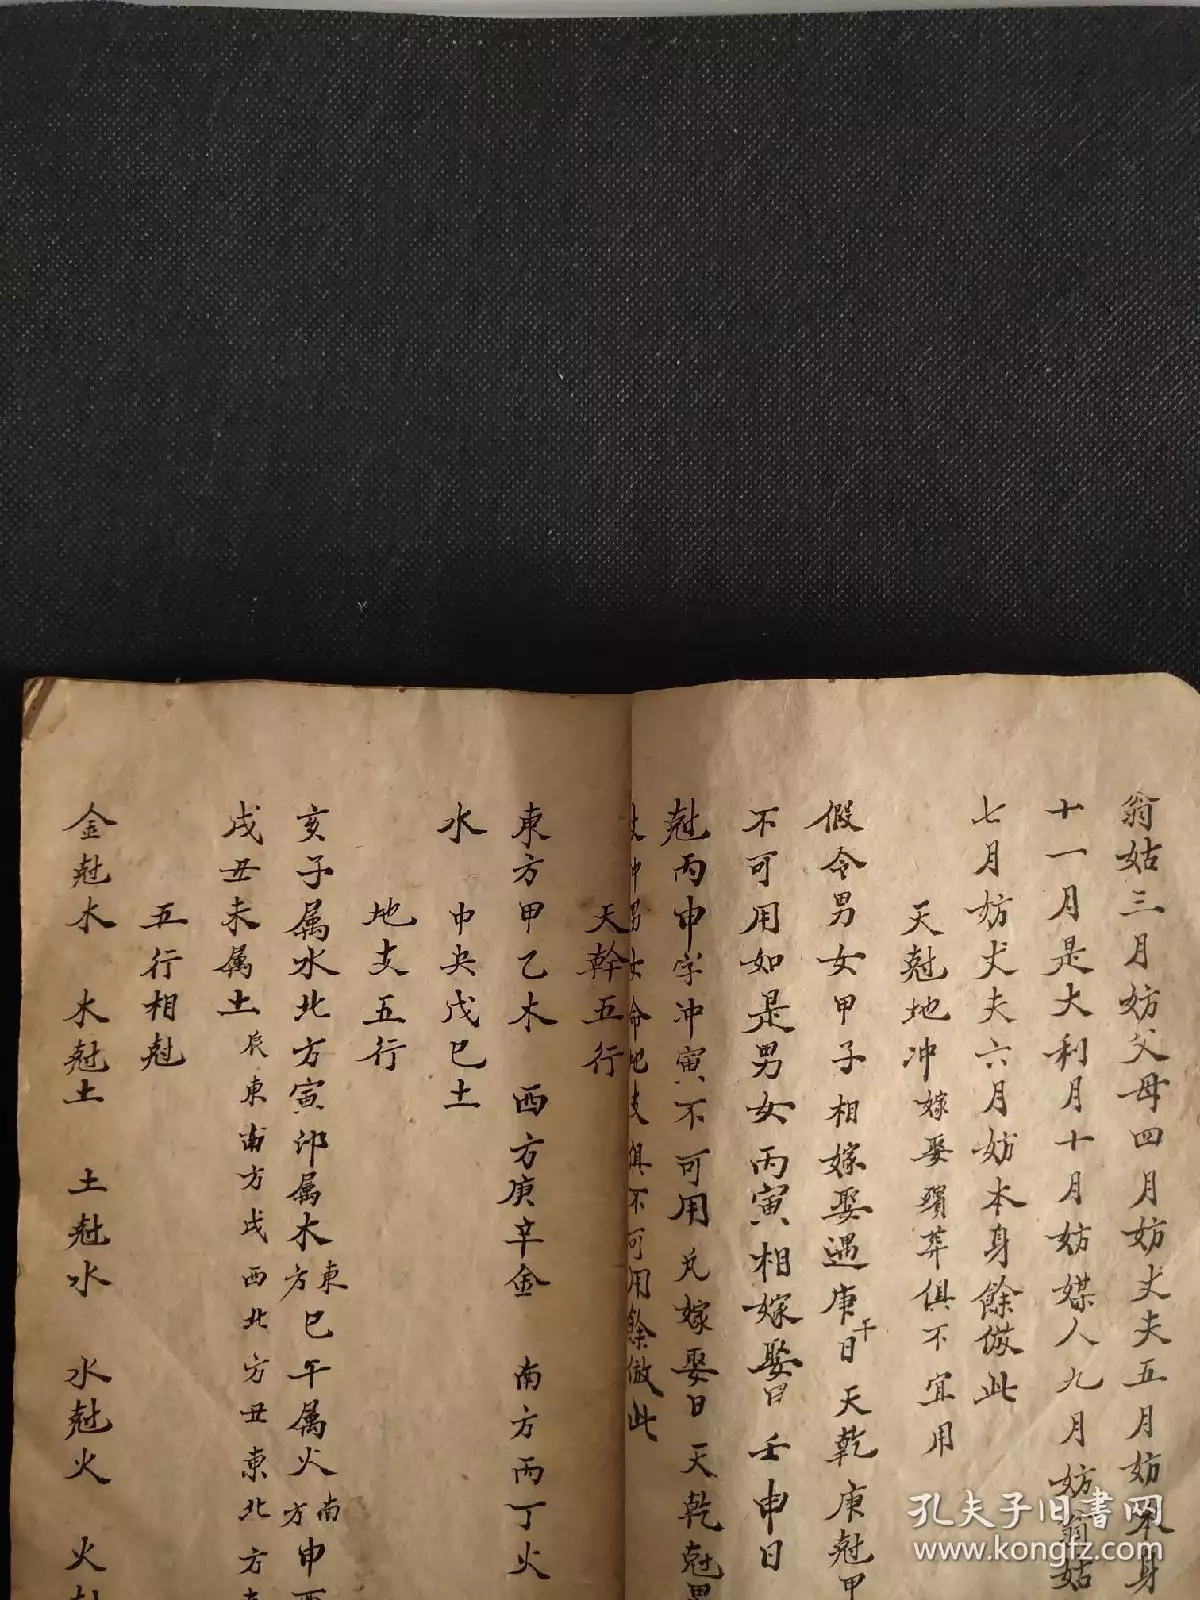 翁姑三月妨父母四月妨丈夫五月妨本身
十一月是大利月十月妨媒人九月妨翁姑
七月妨丈夫六月妨本身餘倣此
天尅地冲嫁娶殯葬俱不宜用
假令男女甲子相嫁娶遇庚午日天乾庚尅甲
不可用如是男女丙寅相嫁娶日壬申日
尅丙申字冲寅不可用凡嫁娶日天乾尅男
冲男女命地支俱不可用餘倣此
天幹五行
東方甲乙木 西方庚辛金 南方丙丁火
水 中央戊巳土
地支五行
亥子属水北方寅卯属木東方巳午属火南方申酉
戌丑未属土辰東南方戌西北方丑東北方
五行相尅
金尅木 木尅土 土尅水 水尅火 火尅
孔夫子旧書网
www.kongfz.com